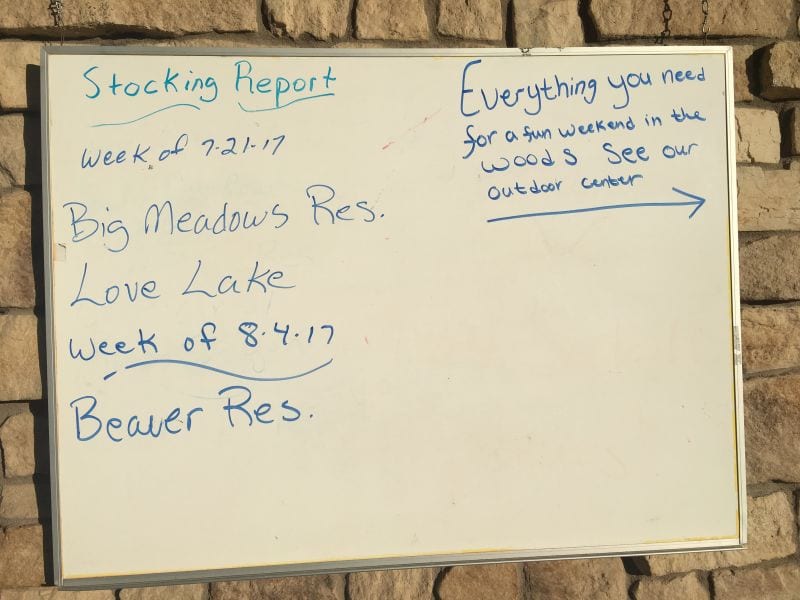 Stocking Report
Week of 7-21-17
Big Meadows Res.
Love Lake
Week of 8.4.17
Beaver Res.
Everything you need
for a fun weekend in the
woods See our
outdoor center